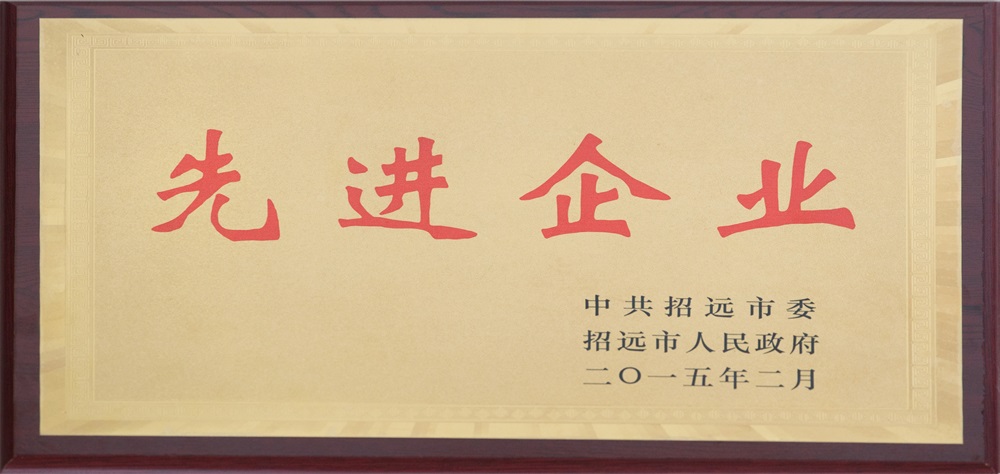 先进企业
中共招远市委
招远市人民政府
二〇一五年二月